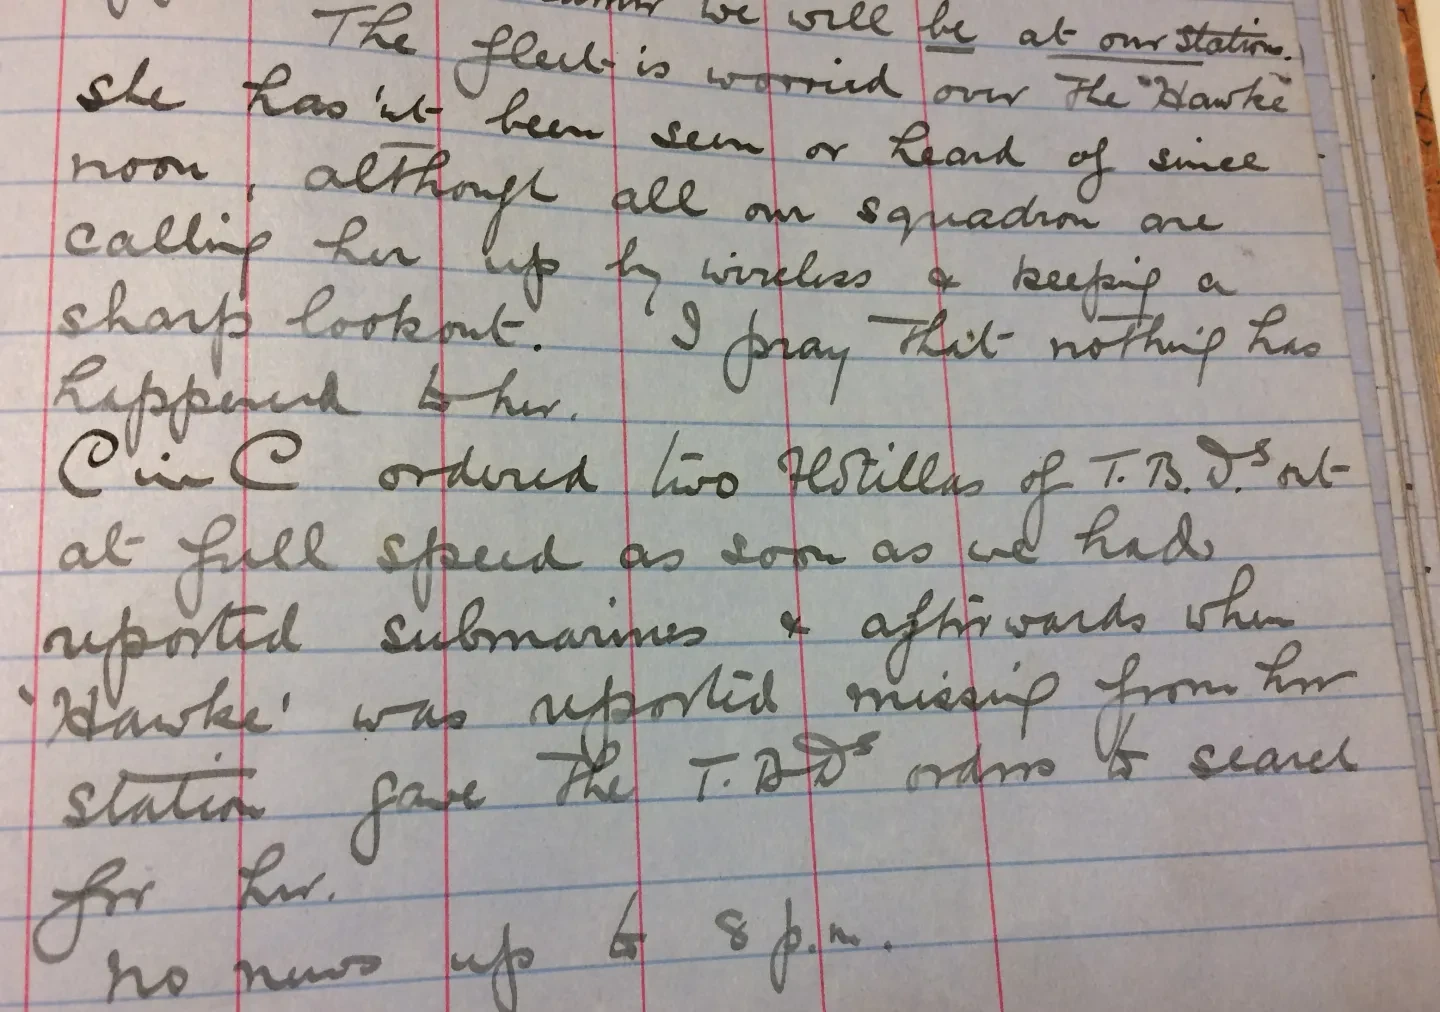 we will be at our stations.
The fleet is worried over the "Hawke"
she has'nt been seen or heard of since
noon, although all our squadron are
calling her up by wireless & keeping a
sharp lookout. I pray that nothing has
happened to her.
C in C ordered two flotillas of T.B.D.s out
at full speed as soon as we had
reported submarines & afterwards when
'Hawke' was reported missing from her
station gave the T.B.Ds orders to search
for her.
No news up to 8 p.m.